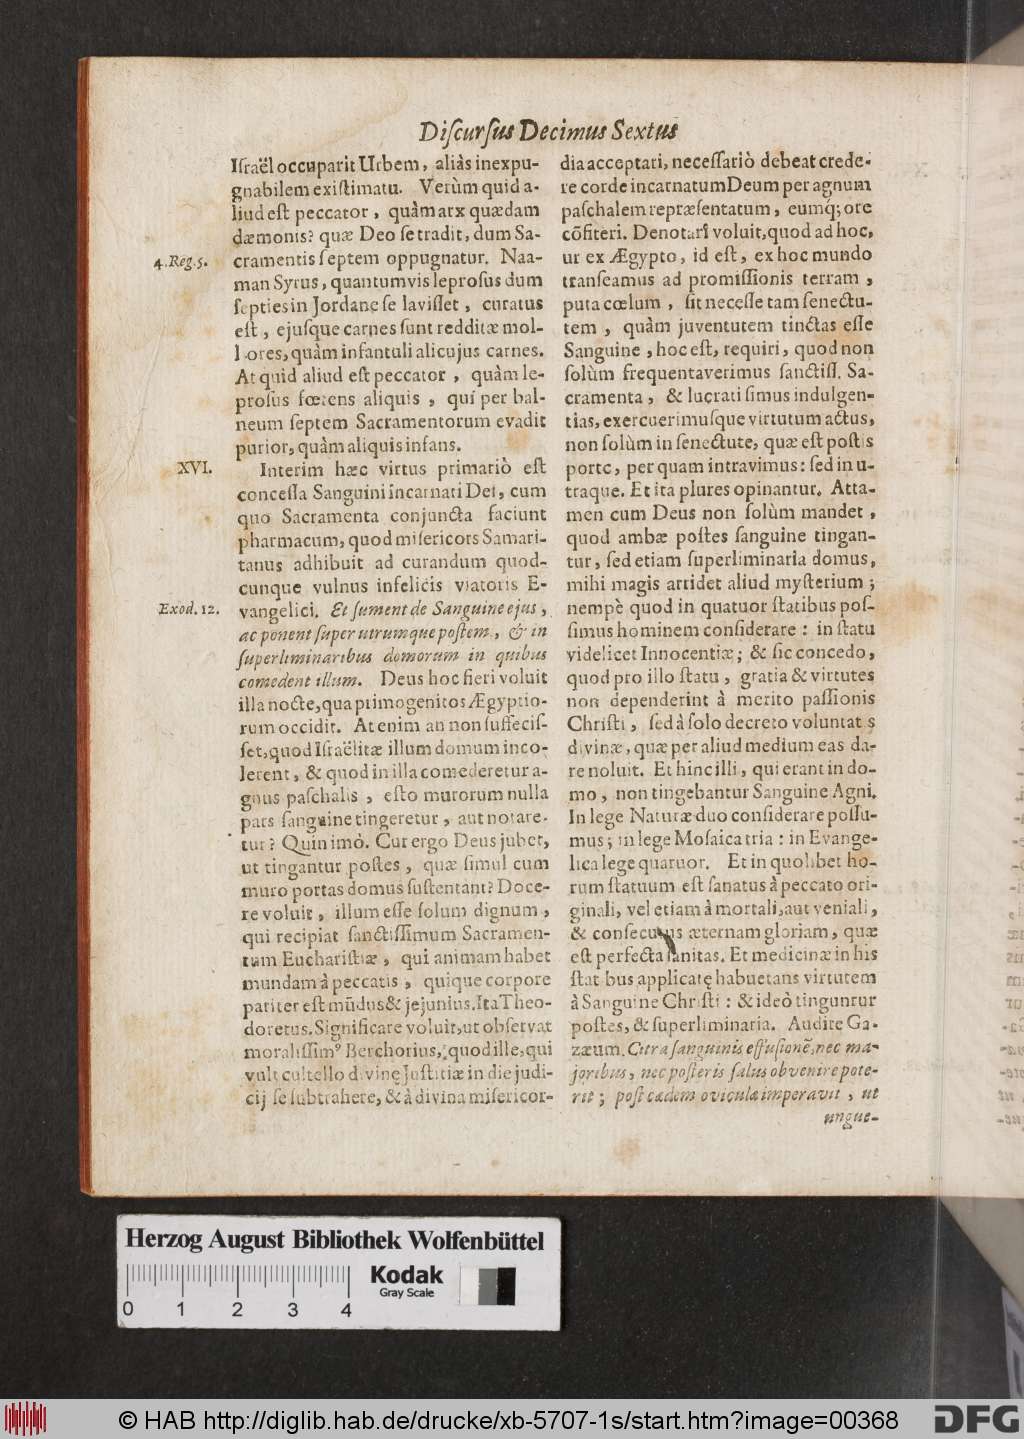 Diſcurſus Decimus Sextus
Iſraël occuparit Urbem, aliàs inexpu-
gnabilem exiſtimatu. Verùm quid a-
liud eſt peccator, quàm arx quædam
dæmonis? quæ Deo ſe tradit, dum Sa-
4. Reg. 5.
cramentis ſeptem oppugnatur. Naa-
man Syrus, quantumvis leproſus dum
ſepties in Jordane ſe laviſſet, curatus
eſt, ejuſque carnes ſunt redditæ mol-
liores, quàm infantuli alicujus carnes.
At quid aliud eſt peccator, quàm le-
proſus fœtens aliquis, qui per bal-
neum ſeptem Sacramentorum evadit
purior, quàm aliquis infans.
XVI.
Interim hæc virtus primariò eſt
conceſſa Sanguini incarnati Dei, cum
quo Sacramenta conjuncta faciunt
pharmacum, quod miſericors Samari-
tanus adhibuit ad curandum quod-
cunque vulnus infelicis viatoris E-
Exod. 12.
vangelici. Et ſument de Sanguine ejus,
ac ponent ſuper utrumque poſtem, & in
ſuperliminaribus domorum in quibus
comedent illum. Deus hoc fieri voluit
illa nocte, qua primogenitos Ægyptio-
rum occidit. At enim an non ſuffeciſ-
ſet, quod Iſraëlitæ illum domum inco-
lerent, & quod in illa comederetur a-
gnus paſchalis, eſto murorum nulla
pars ſanguine tingeretur, aut notare-
tur? Quin imò. Cur ergo Deus jubet,
ut tingantur poſtes, quæ ſimul cum
muro portas domus ſuſtentant? Doce-
re voluit, illum eſſe ſolum dignum,
qui recipiat ſanctiſſimum Sacramen-
tum Euchariſtiæ, qui animam habet
mundam à peccatis, quique corpore
pariter eſt mūdus & jejunius. Ita Theo-
doretus. Significare voluit, ut obſervat
moraliſſimꝰ Berchorius, quod ille, qui
vult cultello divinę Juſtitiæ in die judi-
cij ſe ſubtrahere, & à divina miſericor-
dia acceptari, neceſſariò debeat crede-
re corde incarnatum Deum per agnum
paſchalem repræſentatum, eumq́; ore
cõfiteri. Denotari voluit, quod ad hoc,
ut ex Ægypto, id eſt, ex hoc mundo
tranſeamus ad promiſſionis terram,
puta cœlum, ſit neceſſe tam ſenectu-
tem, quàm juventutem tinctas eſſe
Sanguine, hoc eſt, requiri, quod non
ſolùm frequentaverimus ſanctiſſ. Sa-
cramenta, & lucrati ſimus indulgen-
tias, exercuerimuſque virtutum actus,
non ſolùm in ſenectute, quæ eſt poſtis
portæ, per quam intravimus: ſed in u-
traque. Et ita plures opinantur. Atta-
men cum Deus non ſolùm mandet,
quod ambæ poſtes ſanguine tingan-
tur, ſed etiam ſuperliminaria domus,
mihi magis arridet aliud myſterium;
nempè quod in quatuor ſtatibus poſ-
ſimus hominem conſiderare: in ſtatu
videlicet Innocentiæ; & ſic concedo,
quod pro illo ſtatu, gratia & virtutes
non dependerint à merito paſſionis
Chriſti, ſed à ſolo decreto voluntatis
divinæ, quæ per aliud medium eas da-
re noluit. Et hinc illi, qui erant in do-
mo, non tingebantur Sanguine Agni.
In lege Naturæ duo conſiderare poſſu-
mus; in lege Moſaica tria: in Evange-
lica lege quatuor. Et in quolibet ho-
rum ſtatuum eſt ſanatus à peccato ori-
ginali, vel etiam à mortali, aut veniali,
& conſecutus æternam gloriam, quæ
eſt perfecta ſanitas. Et medicinæ in his
ſtatibus applicatę habuerans virtutem
à Sanguine Chriſti: & ideò tinguntur
poſtes, & ſuperliminaria. Audire Ga-
zæum. Citra ſanguinis effuſionẽ, nec ma-
joribus, nec poſteris ſalus obvenire pote-
rit; poſt cædem oviculæ imperavit, ut
ungue-
Herzog August Bibliothek Wolfenbüttel
Kodak
Gray Scale
0 1 2 3 4
© HAB http://diglib.hab.de/drucke/xb-5707-1s/start.htm?image=00368
DFG